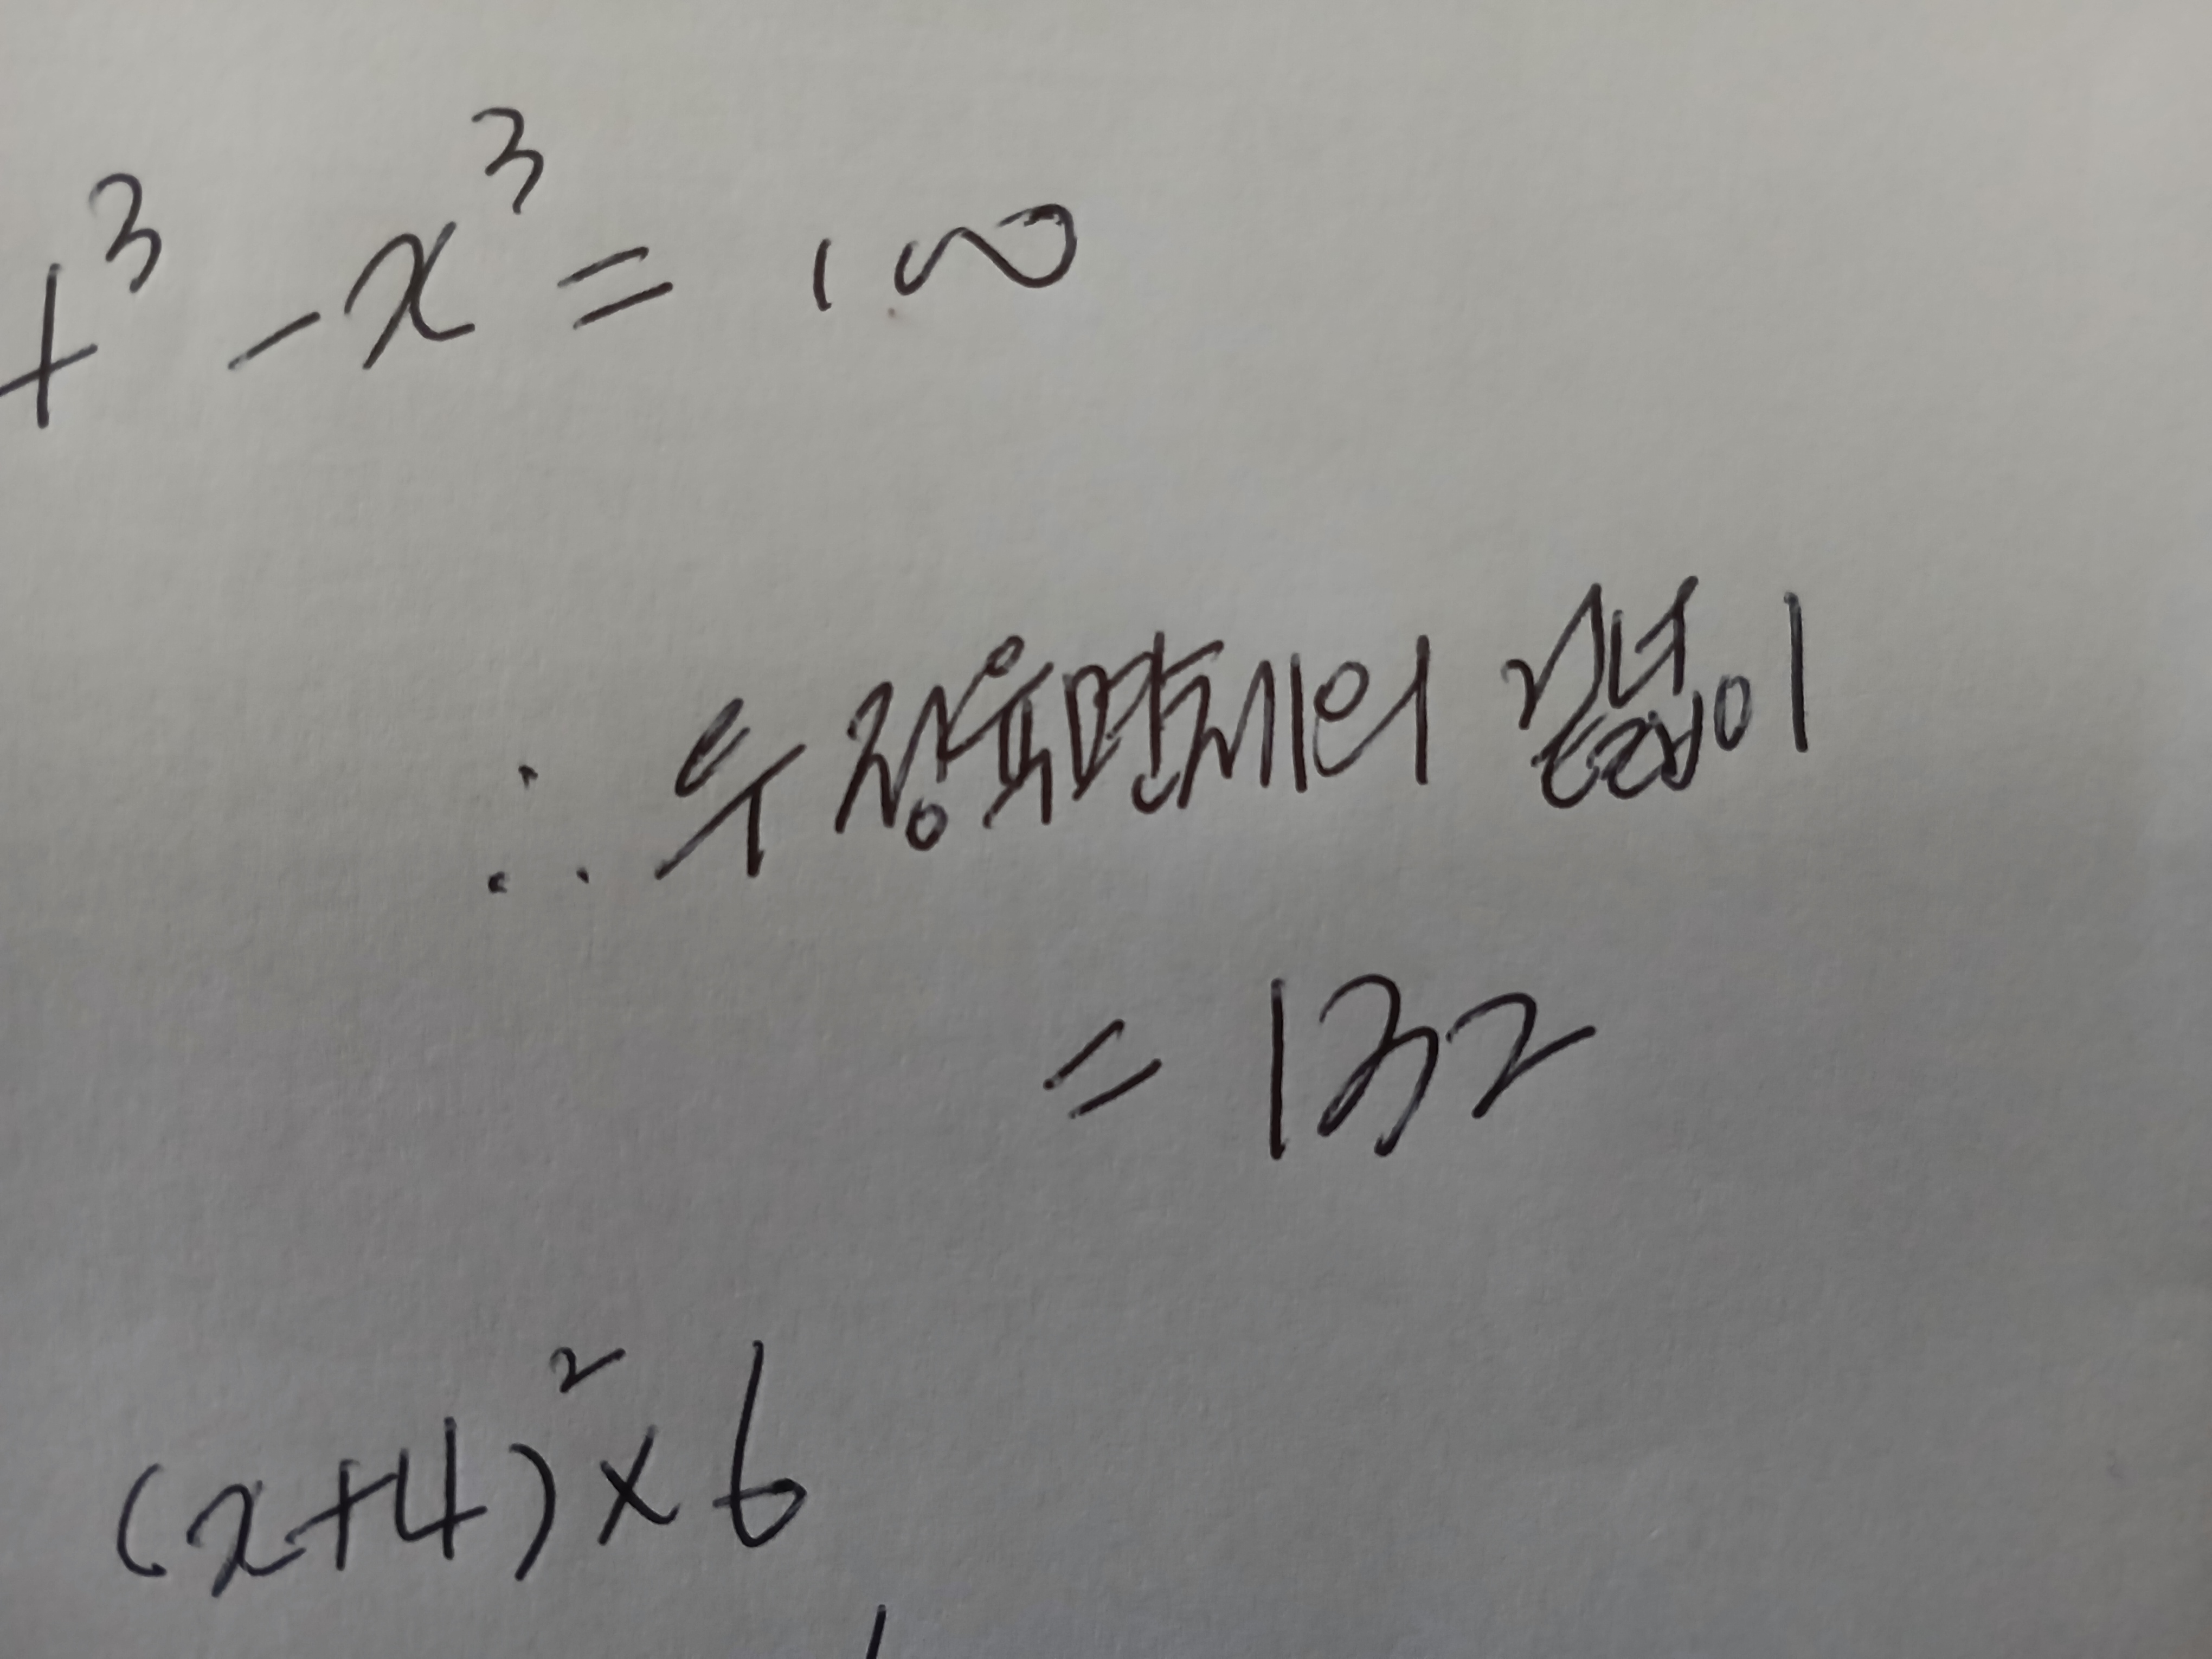 +³ - x³ = 100
∴ 두 정육면체의 겉넓이
= 132
(x+4)² × 6